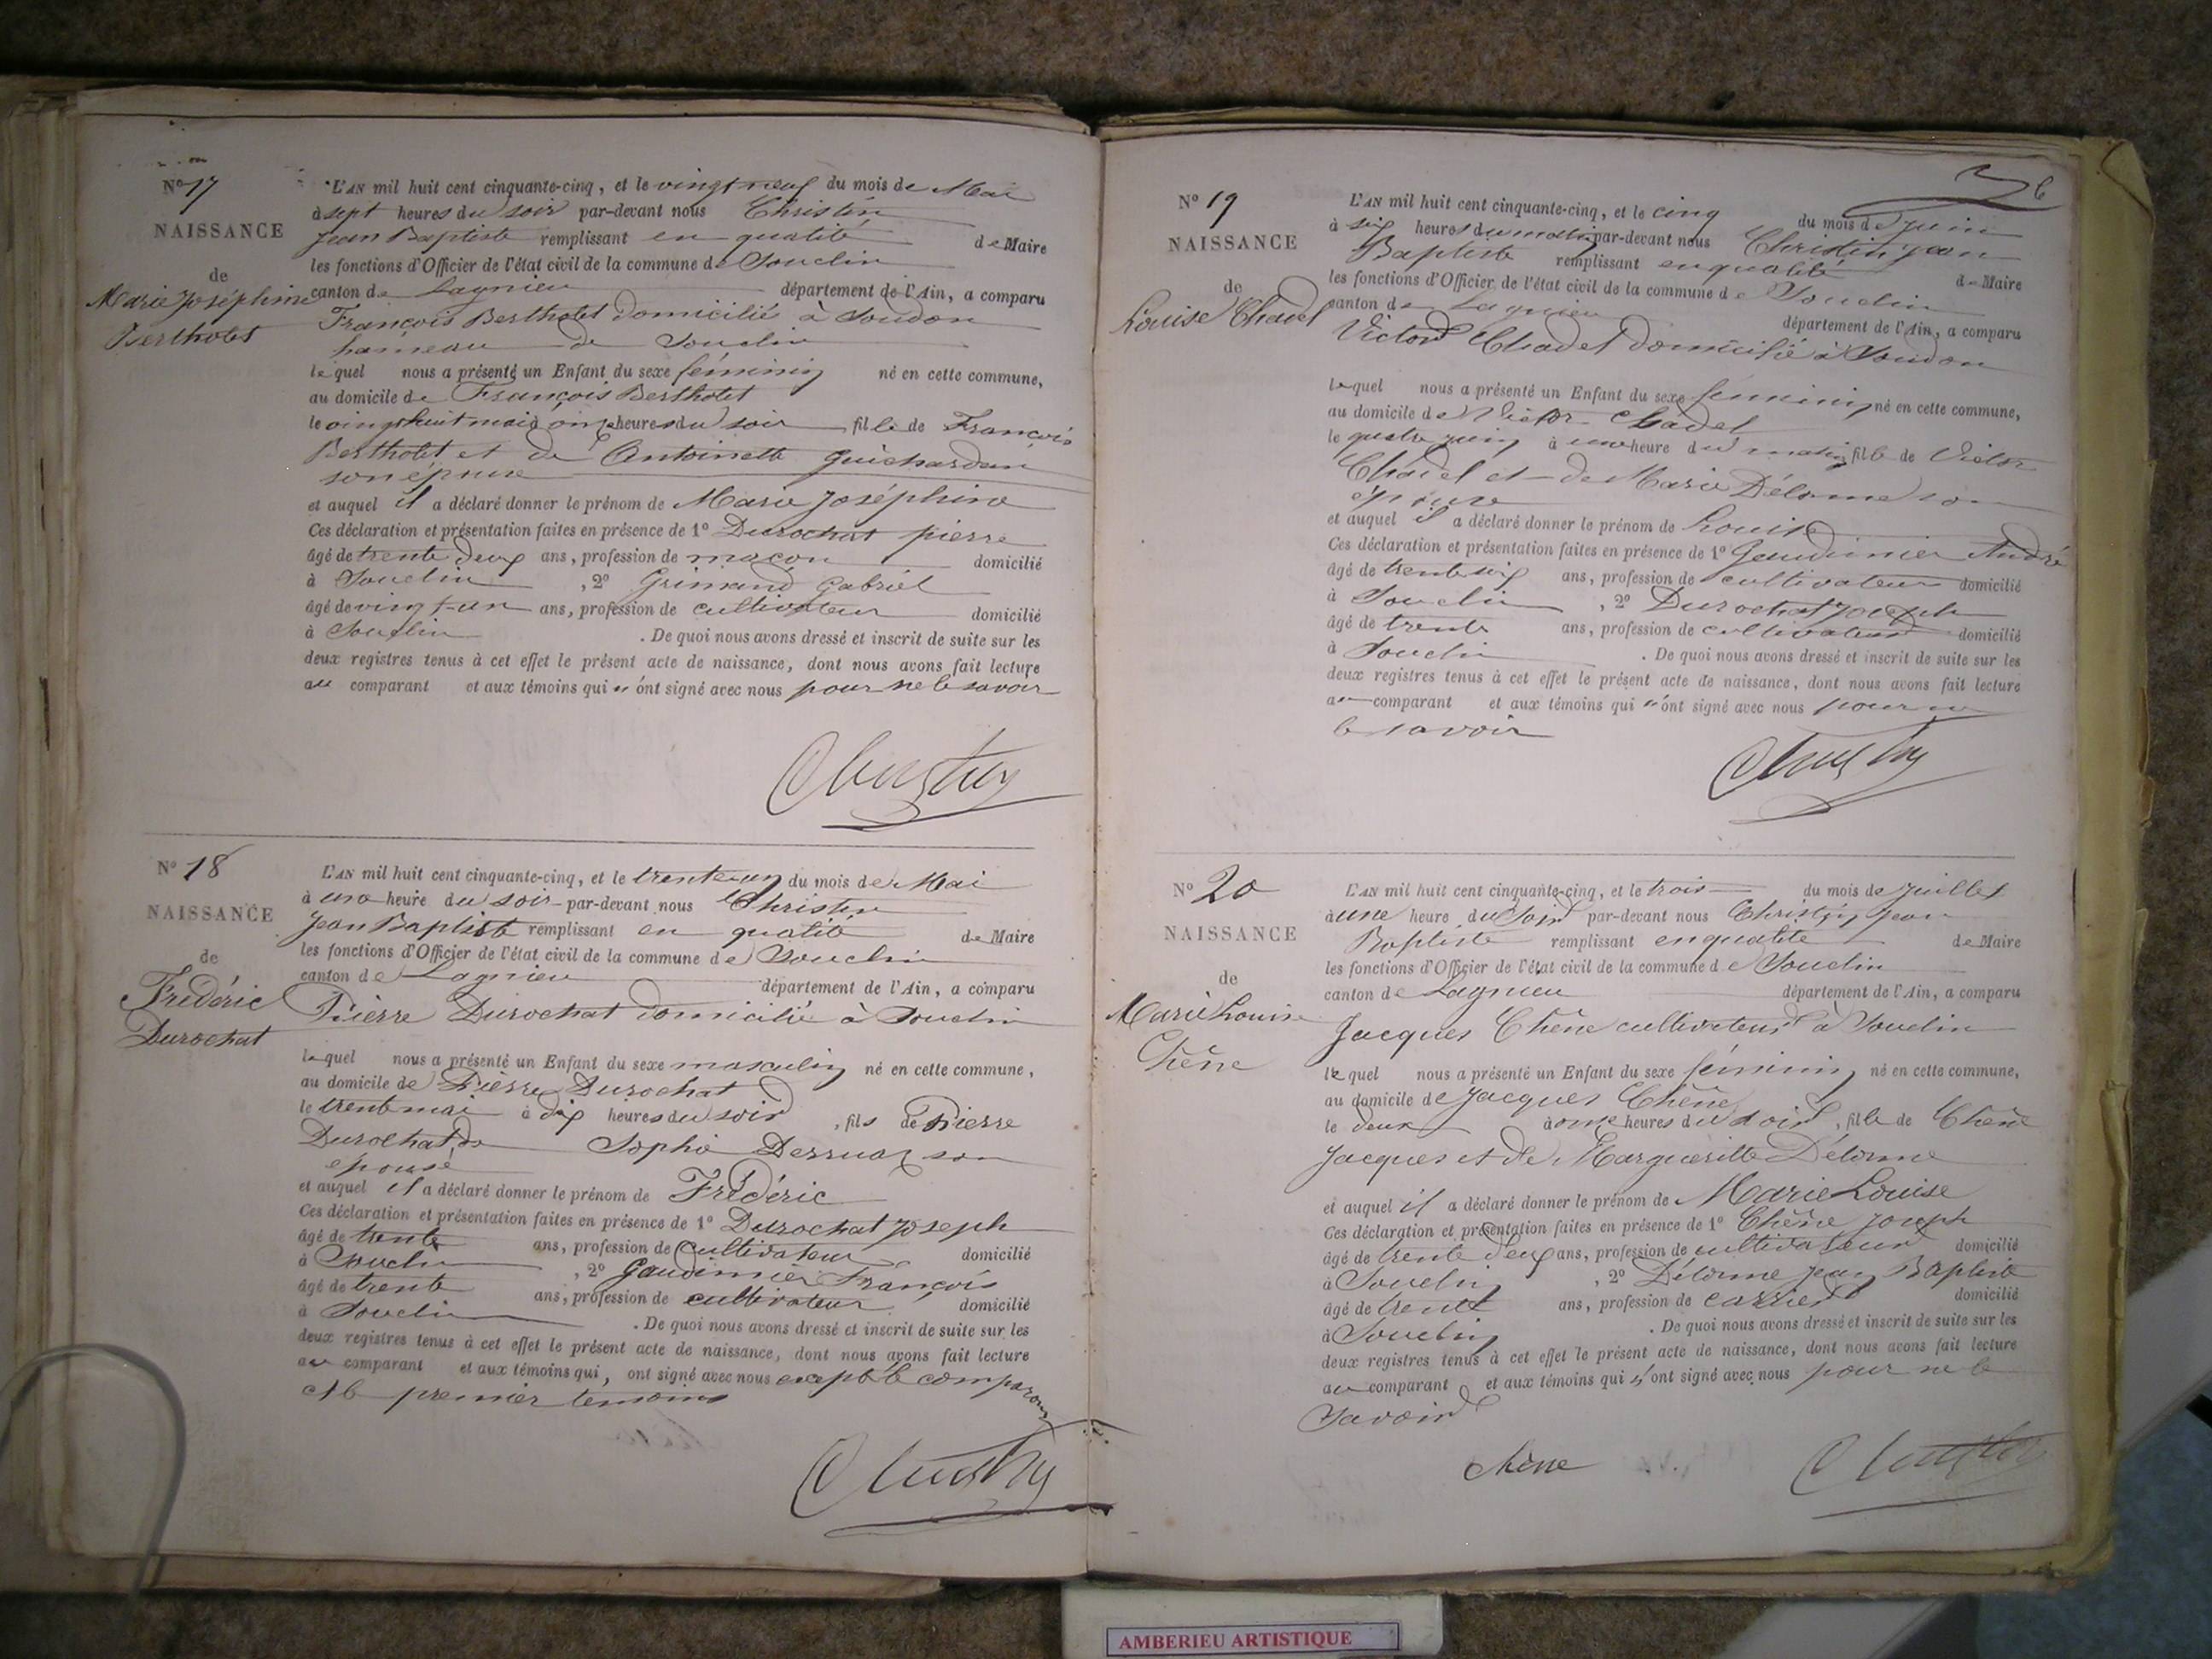 N° 17
NAISSANCE
de
Marie Joséphine
Bertholet
L'AN mil huit cent cinquante-cinq, et le vingt neuf du mois de Mai
à sept heures du soir par-devant nous Christin
Jean Baptiste remplissant en qualité de Maire
les fonctions d'Officier de l'état civil de la commune de Souclin
canton de Lagnieu département de l'Ain, a comparu
François Bertholet domicilié à Soudon
hameau de Souclin
lequel nous a présenté un Enfant du sexe féminin né en cette commune,
au domicile de François Bertholet
le vingt huit mai à onze heures du soir fille de François
Bertholet et de Antoinette Guichardan
son épouse
et auquel il a déclaré donner le prénom de Marie Joséphine
Ces déclaration et présentation faites en présence de 1° Durochat pierre
âgé de trente deux ans, profession de maçon domicilié
à Souclin , 2° Grimand Gabriel
âgé de vingt-un ans, profession de cultivateur domicilié
à Souclin . De quoi nous avons dressé et inscrit de suite sur les
deux registres tenus à cet effet le présent acte de naissance, dont nous avons fait lecture
au comparant et aux témoins qui n'ont signé avec nous pour ne le savoir
Christin
N° 18
NAISSANCE
de
Frédéric
Durochat
L'AN mil huit cent cinquante-cinq, et le trente-un du mois de Mai
à une heure du soir par-devant nous Christin
Jean Baptiste remplissant en qualité de Maire
les fonctions d'Officier de l'état civil de la commune de Souclin
canton de Lagnieu département de l'Ain, a comparu
Pierre Durochat domicilié à Souclin
lequel nous a présenté un Enfant du sexe masculin né en cette commune,
au domicile de Pierre Durochat
le trente mai à dix heures du soir , fils de Pierre
Durochat de Sophie Derruaz son
épouse
et auquel il a déclaré donner le prénom de Frédéric
Ces déclaration et présentation faites en présence de 1° Durochat Joseph
âgé de trente ans, profession de cultivateur domicilié
à Souclin , 2° Gaudimier François
âgé de trente ans, profession de cultivateur domicilié
à Souclin . De quoi nous avons dressé et inscrit de suite sur les
deux registres tenus à cet effet le présent acte de naissance, dont nous avons fait lecture
au comparant et aux témoins qui, ont signé avec nous excepté le comparant
et le premier temoins
Christin
6
N° 19
NAISSANCE
de
Louise Chadel
L'AN mil huit cent cinquante-cinq, et le cinq du mois de Juin
à six heures du matin par-devant nous Christin Jean
Baptiste remplissant en qualité de Maire
les fonctions d'Officier de l'état civil de la commune de Souclin
canton de Lagnieu département de l'Ain, a comparu
Victor Chadel domicilié à Soudon
lequel nous a présenté un Enfant du sexe féminin né en cette commune,
au domicile de Victor Chadel
le quatre juin à une heure du matin fille de Victor
Chadel et de Marie Délorme son
épouse
et auquel il a déclaré donner le prénom de Louise
Ces déclaration et présentation faites en présence de 1° Gaudimier André
âgé de trente six ans, profession de cultivateur domicilié
à Souclin , 2° Durochat Joseph
âgé de trente ans, profession de cultivateur domicilié
à Souclin . De quoi nous avons dressé et inscrit de suite sur les
deux registres tenus à cet effet le présent acte de naissance, dont nous avons fait lecture
au comparant et aux témoins qui n'ont signé avec nous pour ne
le savoir
Christin
N° 20
NAISSANCE
de
Marie Louise
Chêne
L'AN mil huit cent cinquante-cinq, et le trois du mois de Juillet
à une heure du soir par-devant nous Christin Jean
Baptiste remplissant en qualité de Maire
les fonctions d'Officier de l'état civil de la commune de Souclin
canton de Lagnieu département de l'Ain, a comparu
Jacques Chêne cultivateur à Souclin
lequel nous a présenté un Enfant du sexe féminin né en cette commune,
au domicile de Jacques Chêne
le deux à onze heures du soir , fille de Chêne
Jacques et de Margueritte Délorme
et auquel il a déclaré donner le prénom de Marie Louise
Ces déclaration et présentation faites en présence de 1° Chêne Joseph
âgé de trente deux ans, profession de cultivateur domicilié
à Souclin , 2° Délorme Jean Baptiste
âgé de trente ans, profession de carrier domicilié
à Souclin . De quoi nous avons dressé et inscrit de suite sur les
deux registres tenus à cet effet le présent acte de naissance, dont nous avons fait lecture
au comparant et aux témoins qui n'ont signé avec nous pour ne le
savoir
chêne Christin
AMBERIEU ARTISTIQUE